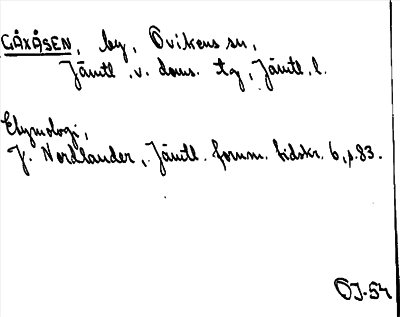 GÅXÅSEN, by, Ovikens sn,
Jämtl. v. doms. tg, Jämtl. l.
Etymologi,
J. Nordlander, Jämtl. fornm. tidskr. 6, s. 83.
ÖJ-54